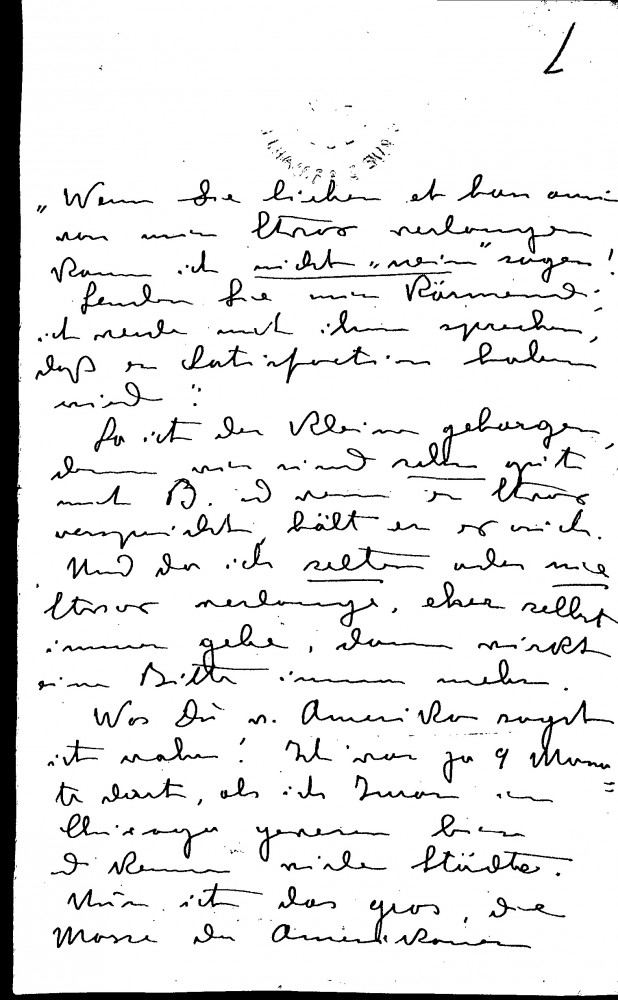 „Wenn Sie lieber et bon ami
von mir Etwas verlangen
kann ich nicht „nein“ sagen!
Senden Sie mir Körmendi;
ich werde mit ihm sprechen,
daß er Satisfaction haben
wird“.
So ist der Kleine geborgen,
denn wir sind sehr gut
mit B. und wenn er Etwas
verspricht, hält er es auch.
Und da ich selten oder nie
Etwas verlange, eher selbst
immer gebe, dann wirkt
eine Bitte immer mehr.
Was Du v. Amerika sagst
ist wahr! Ich war ja 9 Mona=
te dort, als ich Juror in
Chicago gewesen bin
und kenne viele Städte.
Nun ist das gros, die
Masse der Amerikaner